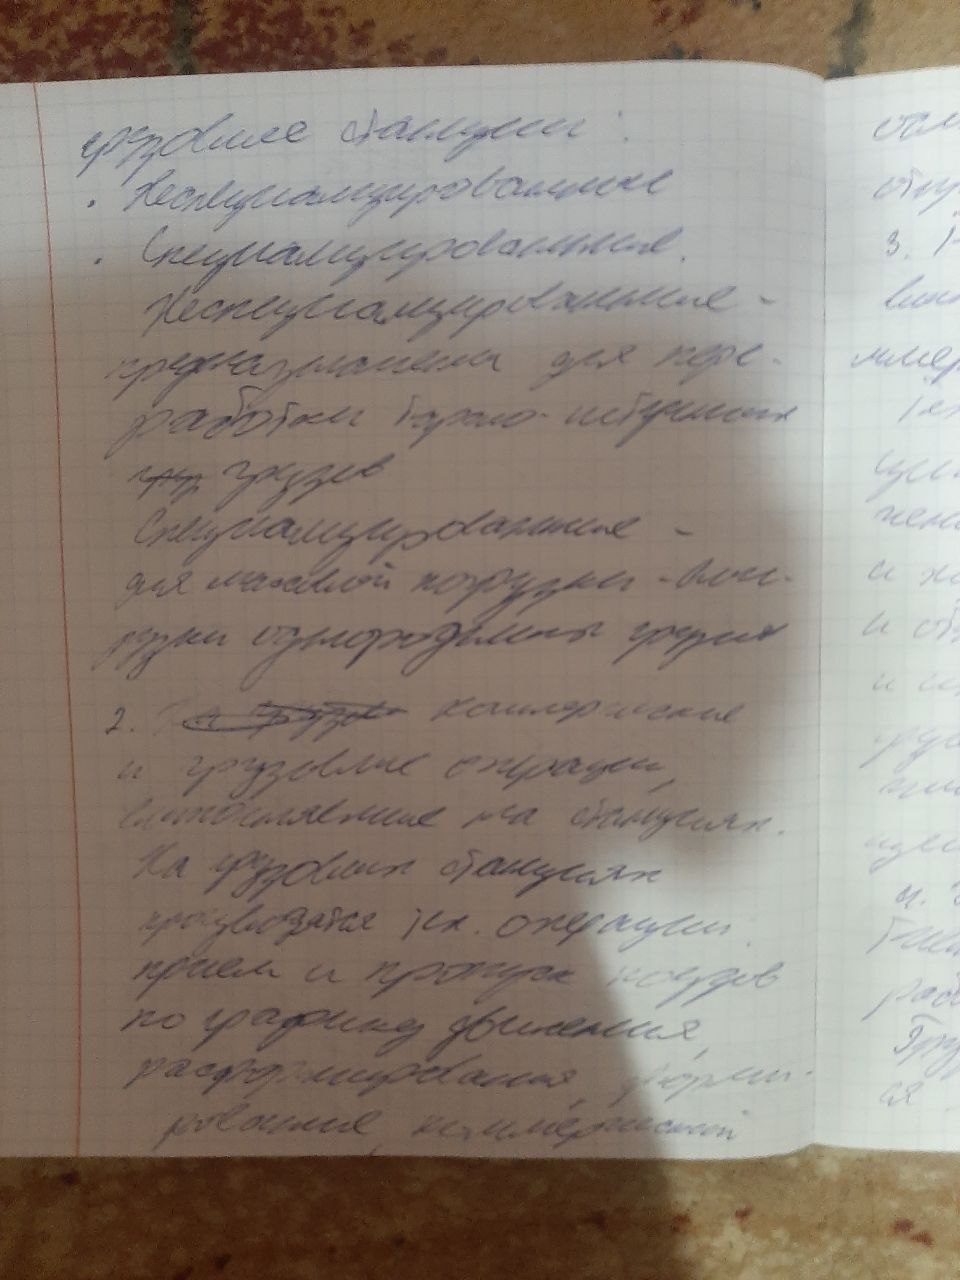 грузовые станции:
. Неспециализированные
. Специализированные.
Неспециализированные -
предназначены для пере-
работки тарно-штучных
грузов
Специализированные -
для массовой погрузки-выг-
рузки однородных грузов
2. Коммерческие
и грузовые операции,
выполняемые на станциях.
На грузовых станциях
производятся тех. операции.
прием и пропуск поездов
по графику движения,
расформирования, форми-
рование, коммерческий
3.
и
и об
и
рабо
Груз
ся